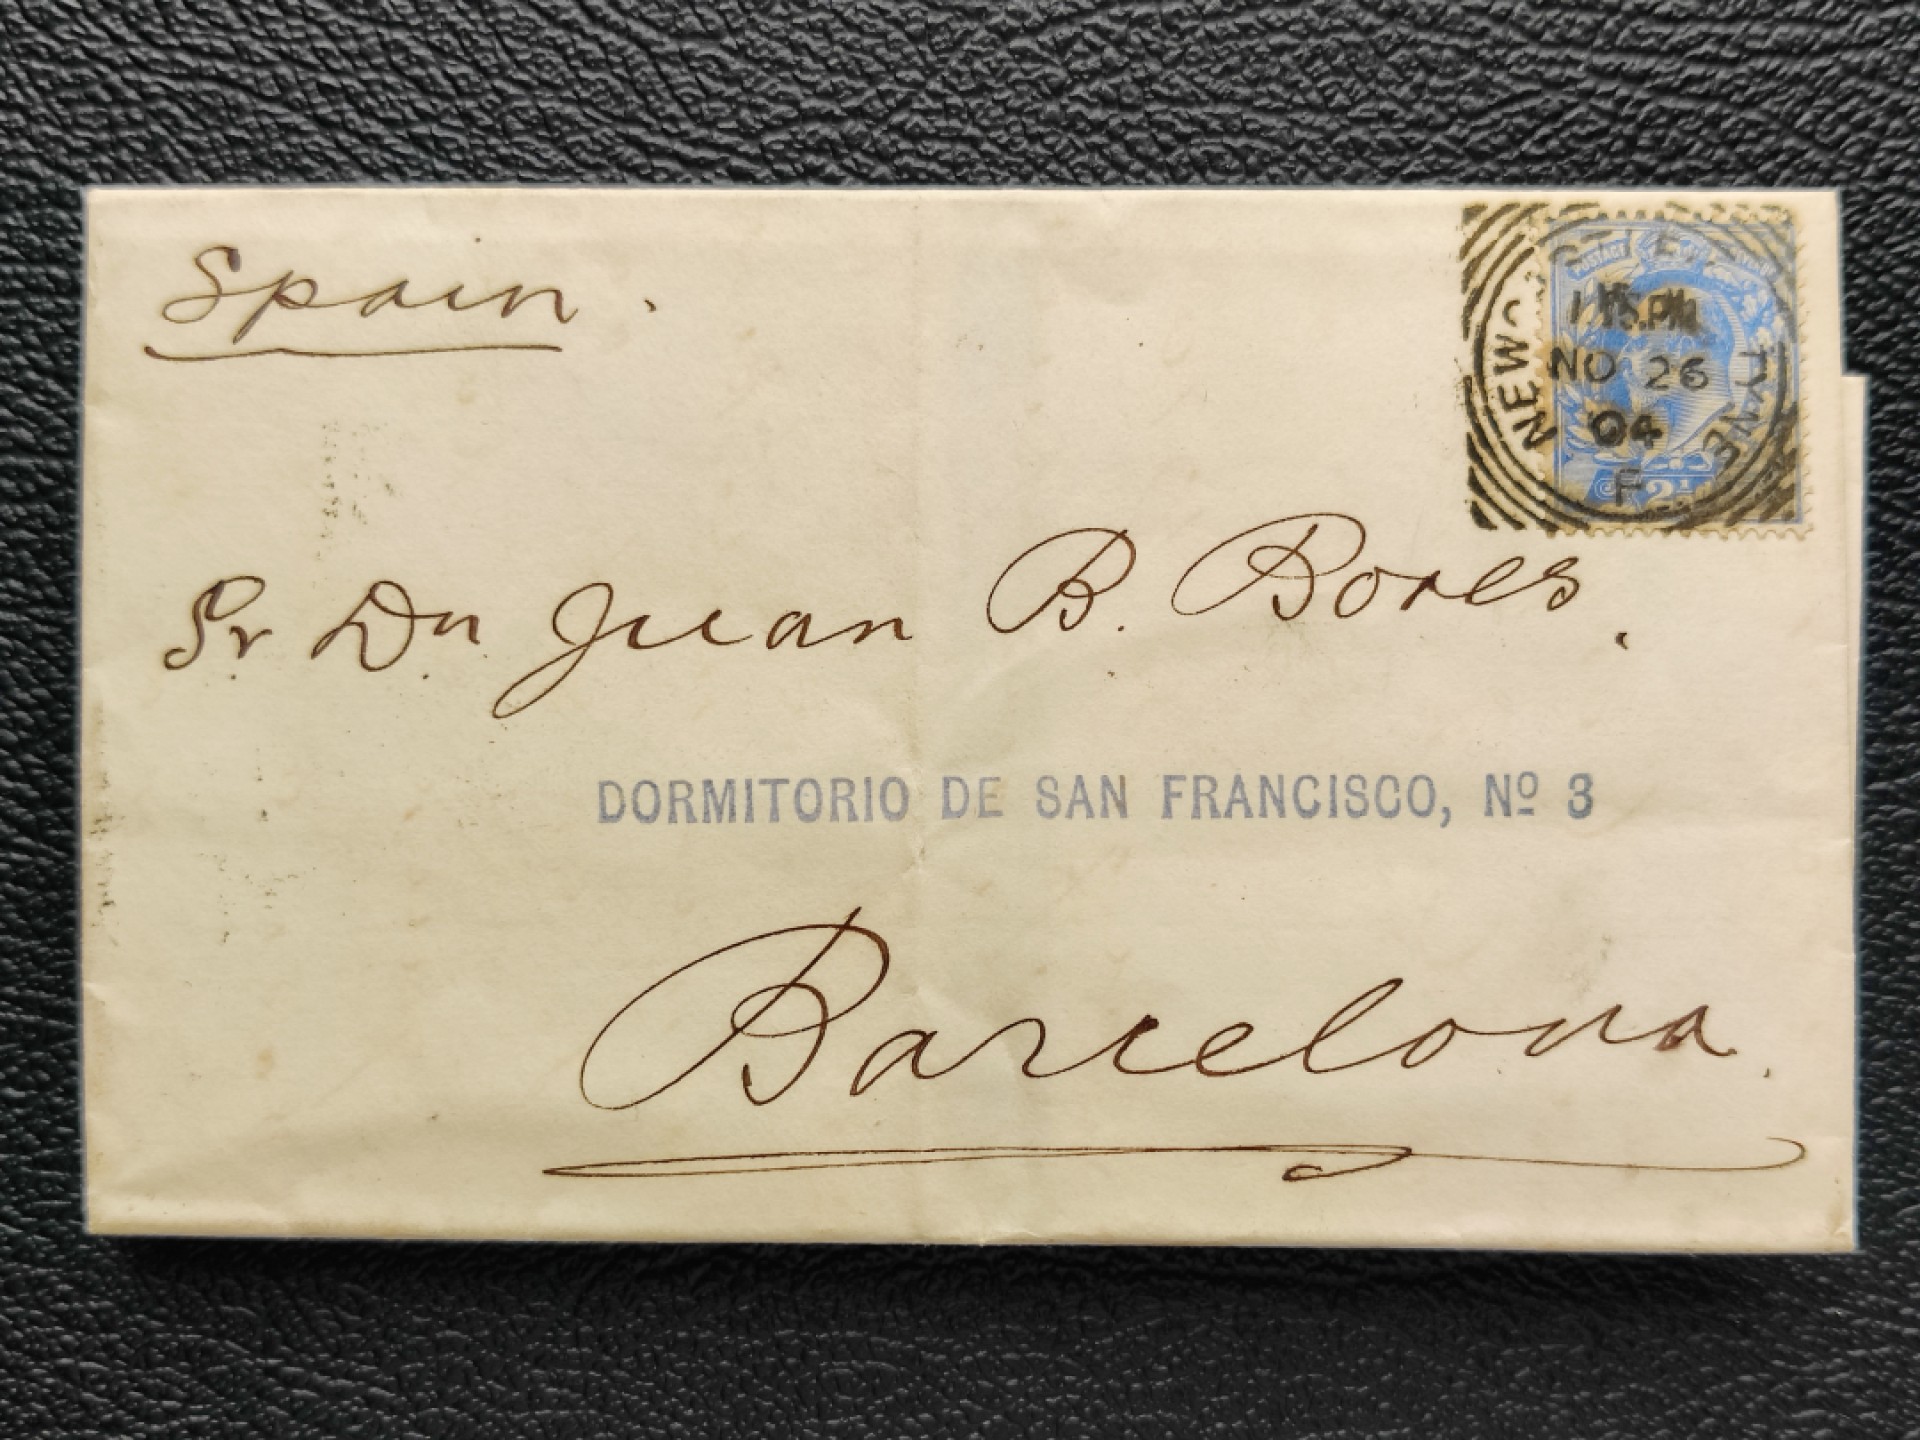 Spain.
NEWC STLE TYNE
1.15.PM
NO 26
04
F
POSTAGE
2½
Sr. Dn. Juan B. Bores.
DORMITORIO DE SAN FRANCISCO, Nº 3
Barcelona.